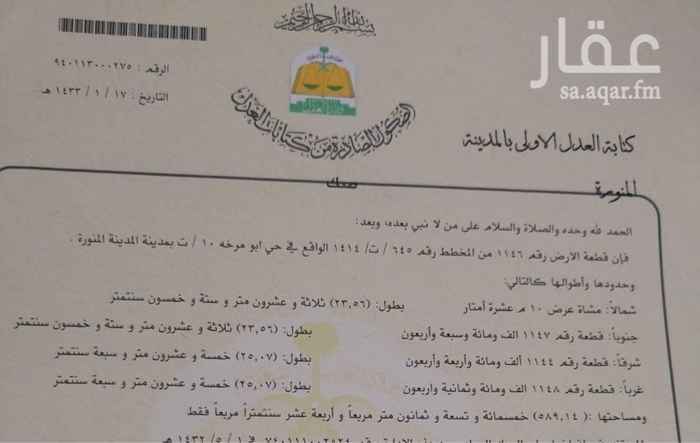 بسم الله الرحمن الرحيم
عقار
sa.aqar.fm
الرقم : ٩٤٠١١٣٠٠٠٢٧٥
التاريخ : ١٧ / ١ / ١٤٣٣ هـ
الصكوك الصادرة من كتابات العدل
كتابة العدل الاولى بالمدينة
المنورة
صك
الحمد لله وحده والصلاة والسلام على من لا نبي بعده، وبعد:
فإن قطعة الارض رقم ١١٤٦ من المخطط رقم ٦٤٥ / ت/ ١٤١٤ الواقع في حي ابو مرخه ١٠ / ت بمدينة المدينة المنورة .
وحدودها وأطوالها كالتالي:
شمالاً: مشاة عرض ١٠ م عشرة أمتار بطول: (٢٣,٥٦) ثلاثة و عشرون متر و ستة و خمسون سنتمتر
جنوباً: قطعة رقم ١١٤٧ الف ومائة وسبعة وأربعون بطول: (٢٣,٥٦) ثلاثة و عشرون متر و ستة و خمسون سنتمتر
شرقاً: قطعة رقم ١١٤٤ ألف ومائة وأربعة وأربعون بطول: (٢٥,٠٧) خمسة و عشرون متر و سبعة سنتمتر
غرباً: قطعة رقم ١١٤٨ الف ومائة وثمانية واربعون بطول: (٢٥,٠٧) خمسة و عشرون متر و سبعة سنتمتر
ومساحتها : (٥٨٩,١٤) خمسمائة و تسعة و ثمانون متر مربعاً و أربعة عشر سنتمتراً مربعاً فقط